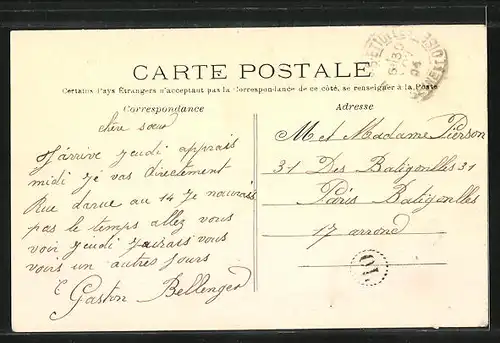 CARTE POSTALE
Certains Pays Étrangers n'acceptant pas la Correspondance de ce côté, se renseigner à la Poste
Correspondance
Adresse
chère sœur
J'arrive jeudi apprais
midi je vas directement
Rue darue au 14 Je naurais
pas le temps allez vous
voir jeudi Jairais vous
voirs un autres jours
Gaston Bellenger
M et Madame Pierson
31 Des Batigonlles 31
Paris Batigonlles
17 arrond